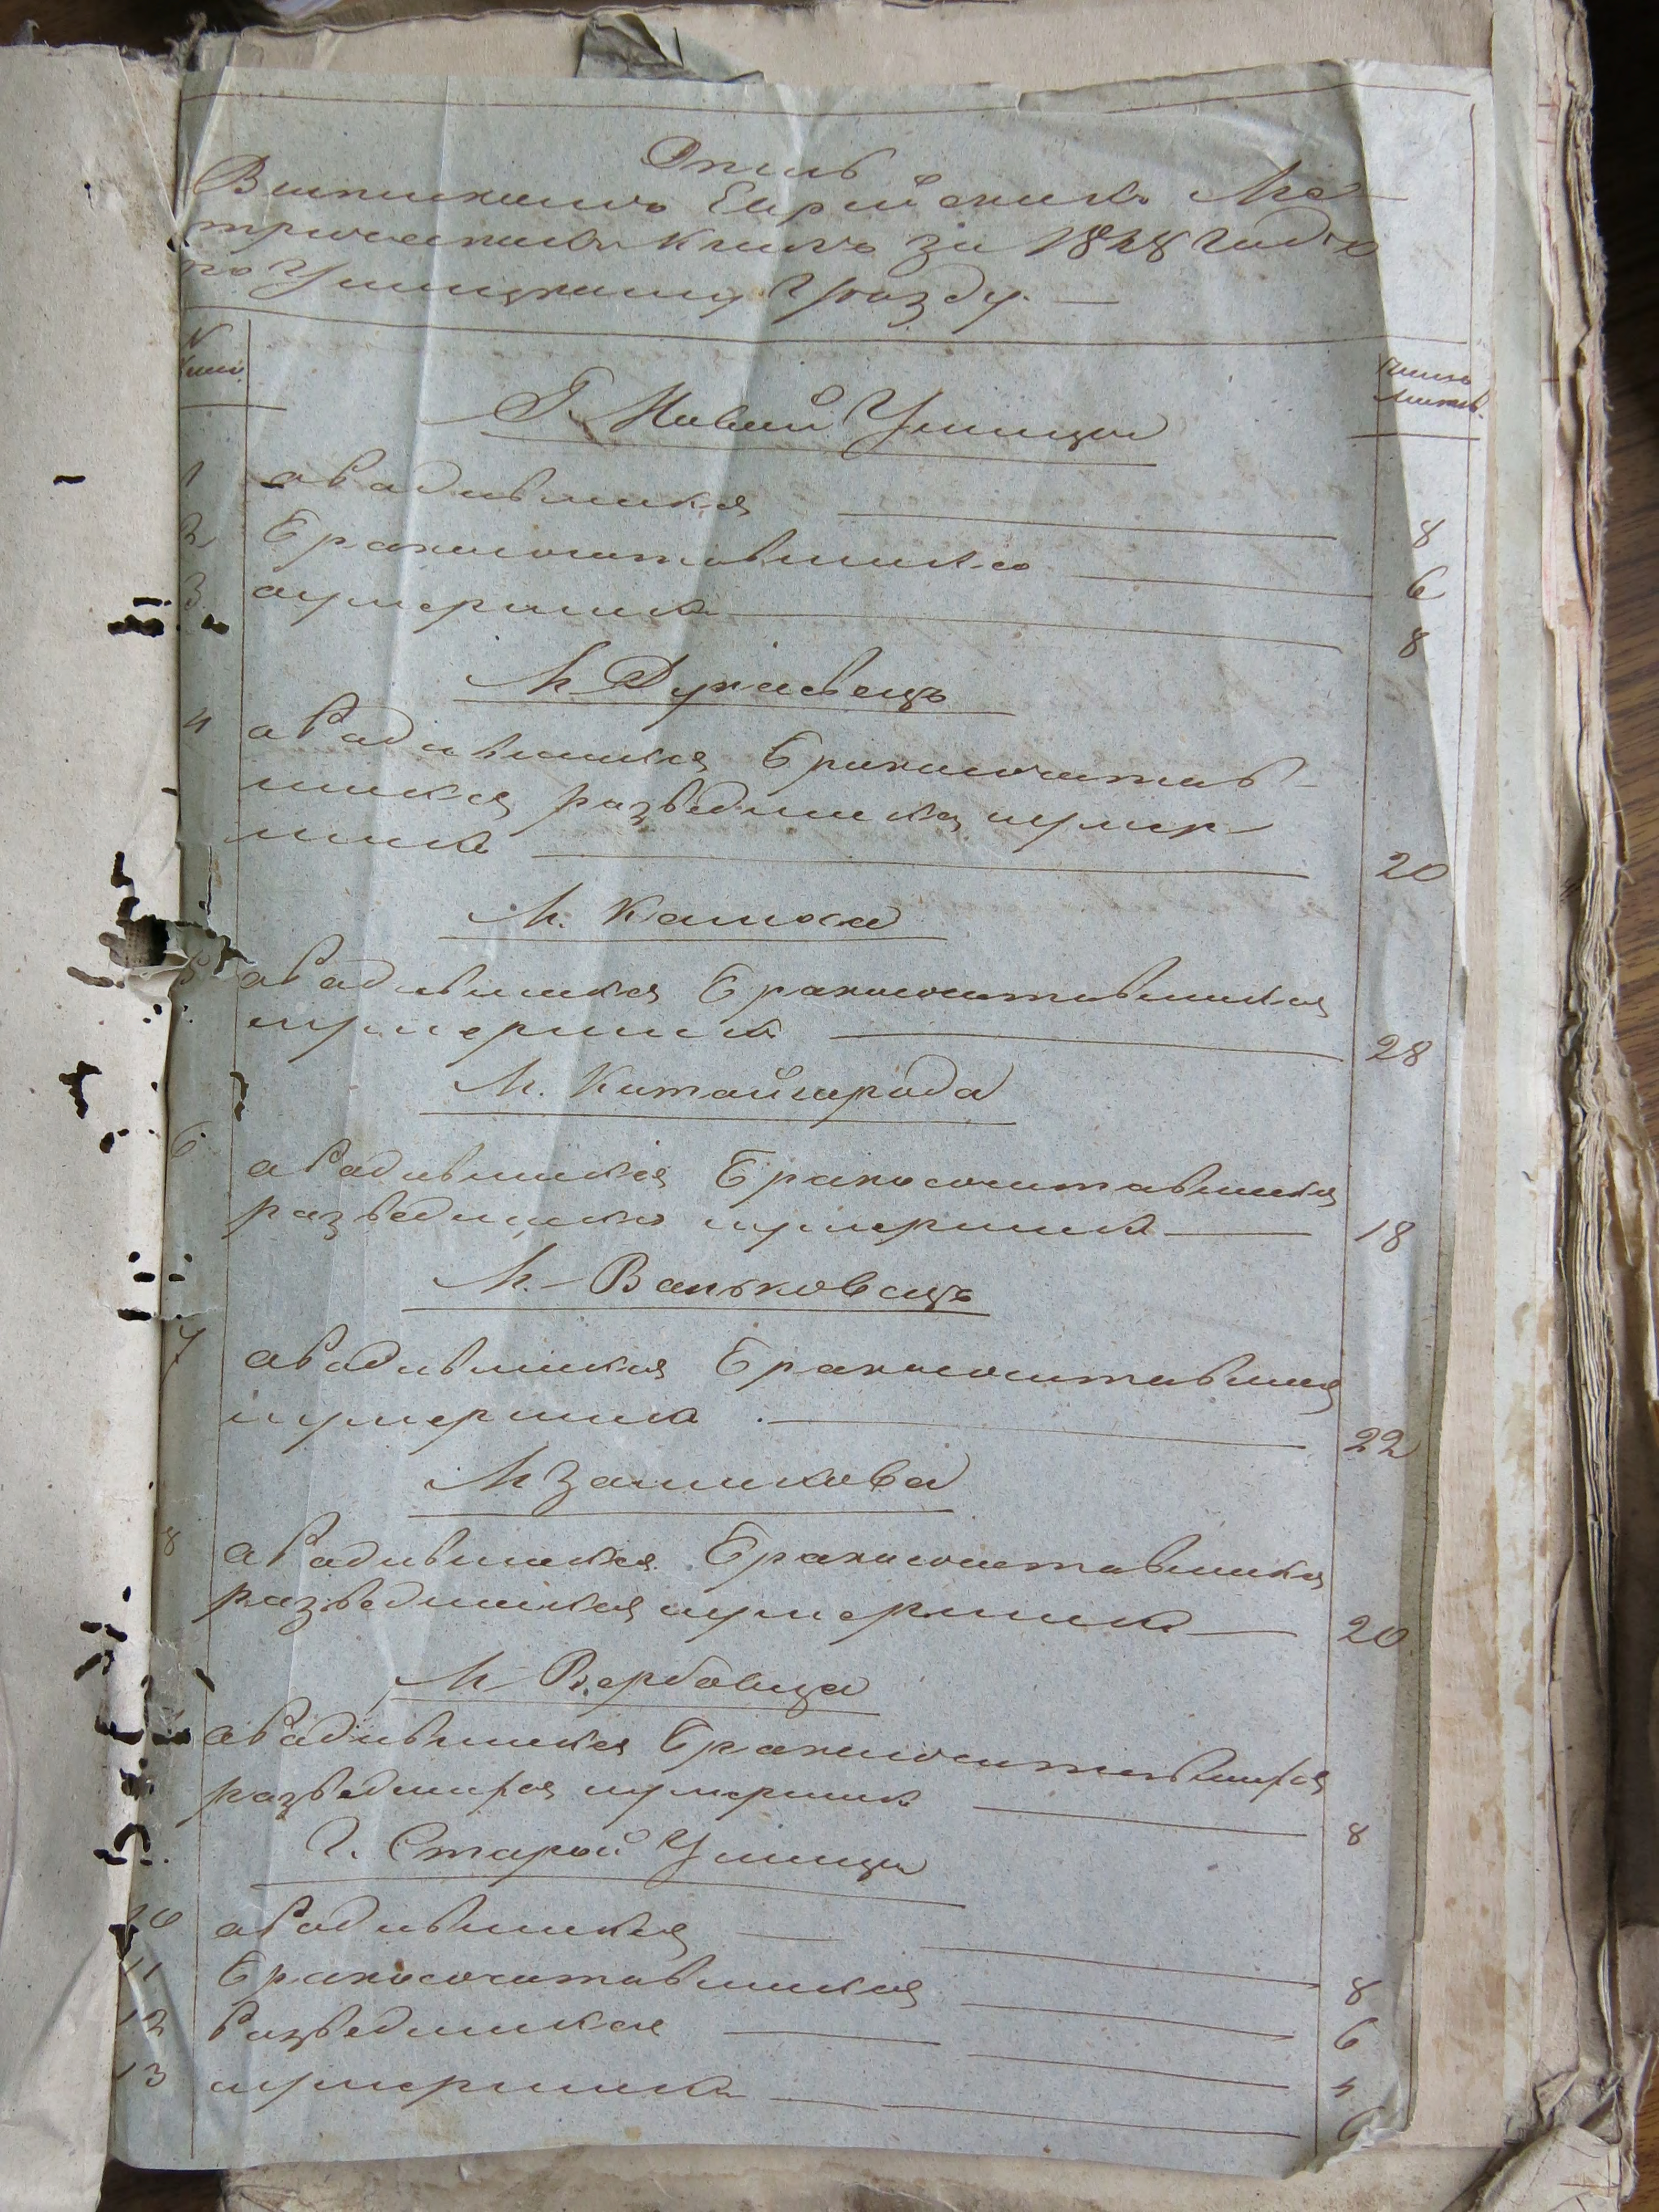 Опись
Выписнымъ Еврейскимъ Ме-
трическимъ книгамъ за 1848 годъ
по Ушицкому Уезду. —
N книг.
число листов.
Г. Новой Ушицы
1 о родившихся — 8
2 бракосочитавшихся — 6
3 и умершихъ — 8
М. Дунаевецъ
4 о родившихся бракосочитав-
шихся разведшихся и умер-
шихъ — 20
М. Калюса
5 о родившихся бракосочитавшихся
и умершихъ — 28
М. Китайгорода
6 о родившихся бракосочитавшихся
разведшихся и умершихъ — 18
М. Ваньковецъ
7 о родившихся бракосочитавшихся
и умершихъ — 22
М. Замихова
8 о родившихся бракосочитавшихся
разведшихся и умершихъ — 20
М. Вербовца
о родившихся бракосочитавшихся
разведшихся и умершихъ — 8
Г. Старой Ушицы
10 о родившихся — 8
11 бракосочитавшихся — 6
12 разведшихся — 4
13 и умершихъ — 6